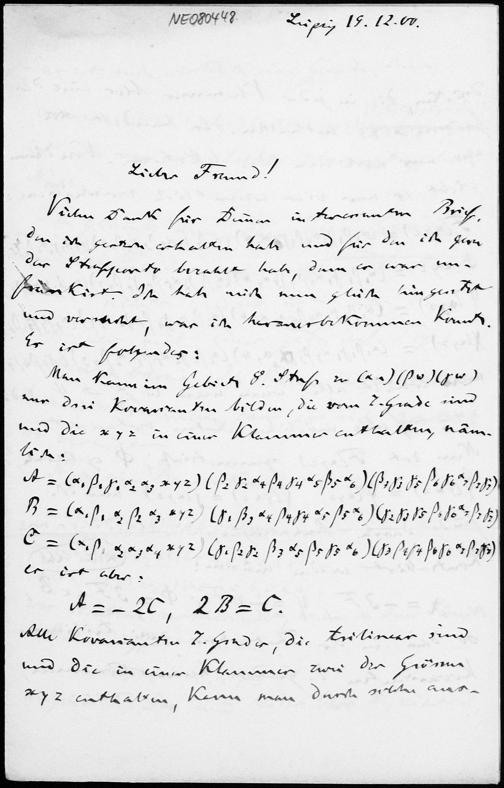 NE080448
Leipzig 19.12.00.
Lieber Freund!
Vielen Dank für Deinen interessanten Brief,
den ich gestern erhalten habe und für den ich gern
das Strafporto bezahlt habe, denn er war un-
frankiert. Ich habe mich nun gleich hingesetzt
und versucht, was ich herausbekommen konnte.
Er ist folgendes:
Man kann im Gebiete 8. Stufe zu (αx)(βw)(γw)
nur drei Kovarianten bilden, die vom 7. Grade sind
und die xyz in einer Klammer enthalten, näm-
lich:
A = (α₁β₁γ₁α₂α₃xyz)
B = (α₁β₁α₂β₂α₃xyz)
C = (α₁β₁α₂α₃α₄xyz)
es ist aber:
A = −2C, 2B = C.
Alle Kovarianten 7. Grades, die trilinear sind
und die in einer Klammer zwei der Grössen
xyz enthalten, kann man durch solche aus-